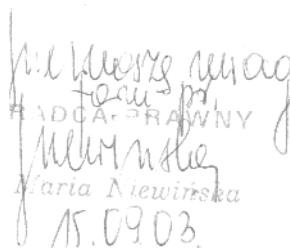 nie wnoszę uwag
form-pr.
RADCA PRAWNY
Niewińska
Maria Niewińska
15.09.03.